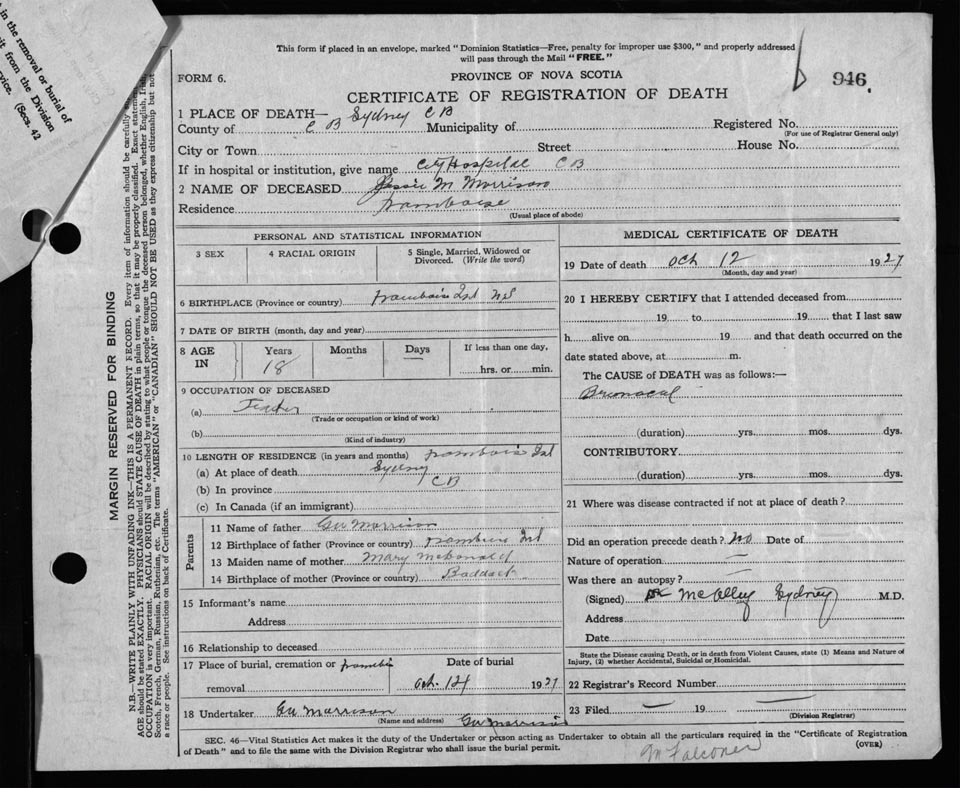 in the removal or burial of
it from the Division
rvice. (Secs. 42
This form if placed in an envelope, marked "Dominion Statistics—Free, penalty for improper use $300," and properly addressed
will pass through the Mail "FREE."
FORM 6.
PROVINCE OF NOVA SCOTIA
946
CERTIFICATE OF REGISTRATION OF DEATH
1 PLACE OF DEATH— Sydney CB
County of C B Municipality of
Registered No.
(For use of Registrar General only)
City or Town Street House No.
If in hospital or institution, give name City Hospital CB
2 NAME OF DECEASED Jessie M Morrison
Residence Framboise
(Usual place of abode)
PERSONAL AND STATISTICAL INFORMATION
3 SEX
4 RACIAL ORIGIN
5 Single, Married, Widowed or Divorced. (Write the word)
6 BIRTHPLACE (Province or country) Framboise Int NS
7 DATE OF BIRTH (month, day and year)
8 AGE IN
Years Months Days If less than one day,
18 hrs. or min.
9 OCCUPATION OF DECEASED
(a)
(Trade or occupation or kind of work)
(b)
(Kind of industry)
10 LENGTH OF RESIDENCE (in years and months) Framboise Int
(a) At place of death Sydney
(b) In province CB
(c) In Canada (if an immigrant)
Parents
11 Name of father Geo Morrison
12 Birthplace of father (Province or country) Framboise Int
13 Maiden name of mother Mary McDonald
14 Birthplace of mother (Province or country) Baddeck
15 Informant's name
Address
16 Relationship to deceased
17 Place of burial, cremation or Framboise
removal
Date of burial
Oct. 14 1927
18 Undertaker Geo Morrison
(Name and address) Geo Morrison
MEDICAL CERTIFICATE OF DEATH
19 Date of death Oct 12 1927
(Month, day and year)
20 I HEREBY CERTIFY that I attended deceased from
19 to 19 that I last saw
h alive on 19 and that death occurred on
date stated above, at m.
The CAUSE of DEATH was as follows:—
(duration) yrs. mos. dys.
CONTRIBUTORY
(duration) yrs. mos. dys.
21 Where was disease contracted if not at place of death?
Did an operation precede death? No Date of
Nature of operation —
Was there an autopsy? —
(Signed) Sydney M.D.
Address
Date
State the Disease causing Death, or in death from Violent Causes, state (1) Means and Nature of
Injury, (2) whether Accidental, Suicidal or Homicidal.
22 Registrar's Record Number
23 Filed — 19 —
(Division Registrar)
SEC. 46—Vital Statistics Act makes it the duty of the Undertaker or person acting as Undertaker to obtain all the particulars required in the "Certificate of Registration
of Death" and to file the same with the Division Registrar who shall issue the burial permit.
(OVER)
M Falconer
MARGIN RESERVED FOR BINDING
N.B.—WRITE PLAINLY WITH UNFADING INK—THIS IS A PERMANENT RECORD. Every item of information should be carefully
AGE should be stated EXACTLY. PHYSICIANS should STATE CAUSE OF DEATH in plain terms, so that it may be properly classified. Exact statement
OCCUPATION is very important. RACIAL ORIGIN will be described by stating to what people or tongue the deceased person belonged, whether English, Irish,
Scotch, French, German, Russian, Ruthenian, etc. The terms "AMERICAN" or "CANADIAN" SHOULD NOT BE USED as they express citizenship but not
a race or people. See instructions on back of Certificate.